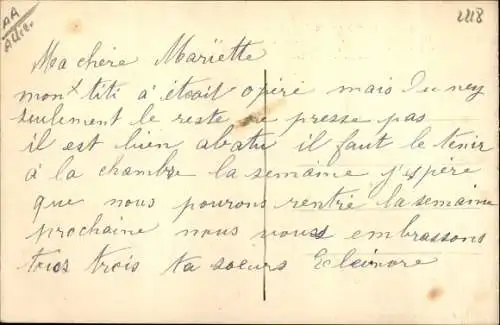 AA
Allier.
2218
Ma chère Mariette
mon titi á était opéré mais du ney
seulement le reste ne presse pas
il est bien abatu il faut le tenir
á la chambre la semaine j'espère
que nous pourons rentré la semaine
prochaine nous vous embrassons
tous trois ta soeurs Eleinore